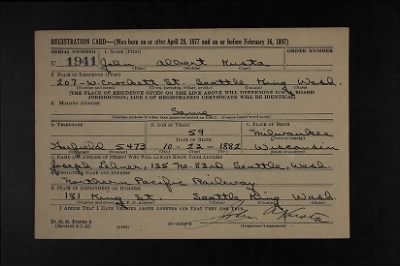 REGISTRATION CARD—(Men born on or after April 28, 1877 and on or before February 16, 1897)
SERIAL NUMBER 1. NAME (Print) ORDER NUMBER
U 1941 John Albert Kusta
(First) (Middle) (Last)
2. PLACE OF RESIDENCE (Print)
207-W. Crockett St. Seattle King Wash.
(Number and street) (Town, township, village, or city) (County) (State)
[THE PLACE OF RESIDENCE GIVEN ON THE LINE ABOVE WILL DETERMINE LOCAL BOARD
JURISDICTION; LINE 2 OF REGISTRATION CERTIFICATE WILL BE IDENTICAL]
3. MAILING ADDRESS
Same
4. TELEPHONE 5. AGE IN YEARS 6. PLACE OF BIRTH
59 Milwaukee
DATE OF BIRTH
Garfield 5473 10-23-1882 Wisconsin
7. NAME AND ADDRESS OF PERSON WHO WILL ALWAYS KNOW YOUR ADDRESS
Joseph 135 No. 83rd Seattle, Wash.
8. EMPLOYER'S NAME AND ADDRESS
Northern Pacific Railway
9. PLACE OF EMPLOYMENT OR BUSINESS
181 King St. Seattle King Wash.
(Number and street or R. F. D. number) (Town) (County) (State)
I AFFIRM THAT I HAVE VERIFIED ABOVE ANSWERS AND THAT THEY ARE TRUE.
D. S. S. Form 1
John A Kusta